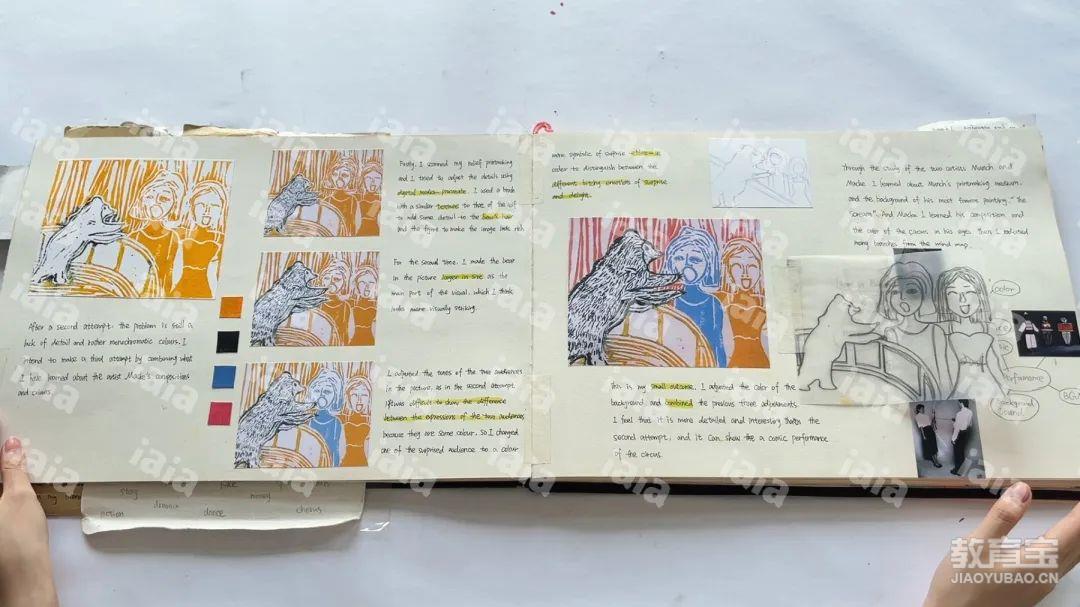 After a second attempt, the problem is still a
lack of detail and rather monochromatic colours. I
intend to make a third attempt by combining what
I have learned about the artist Macke's compositions
and colours.
Firstly, I scanned my relief printmaking
and I tried to adjust the details using
digital media procreate. I used a brush
with a similar texture to that of the
to add some detail to the bear's hair
and the figure to make the image look rich.
For the second time, I made the bear
in the picture larger in size as the
main part of the visual, which I think
looks more visually striking.
I adjusted the tones of the two audiences
in the picture, as in the second attempt
it was difficult to show the difference
between the expressions of the two audiences
because they are some colour. So I changed
one of the surprised audience to a colour
more symbolic of surprise
order to distinguish between the
different emotions of surprise
and delight.
This is my small outcome. I adjusted the color of the
background, and combined the previous three adjustments.
I feel that it is more detailed and interesting than the
second attempt, and it can show the a comic performance
of the circus.
Through the study of the two artists Munch and
Macke. I learned about Munch's printmaking medium.
and the background of his most famous painting. "The
Scream". And Macke I learned his composition and
the color of the circus in his eyes. Then I
branches from the mind map.
color
Background
Sound
BG
stay
money
action
dance
chorus
iaia
教育宝
JIAOYUBAO.CN